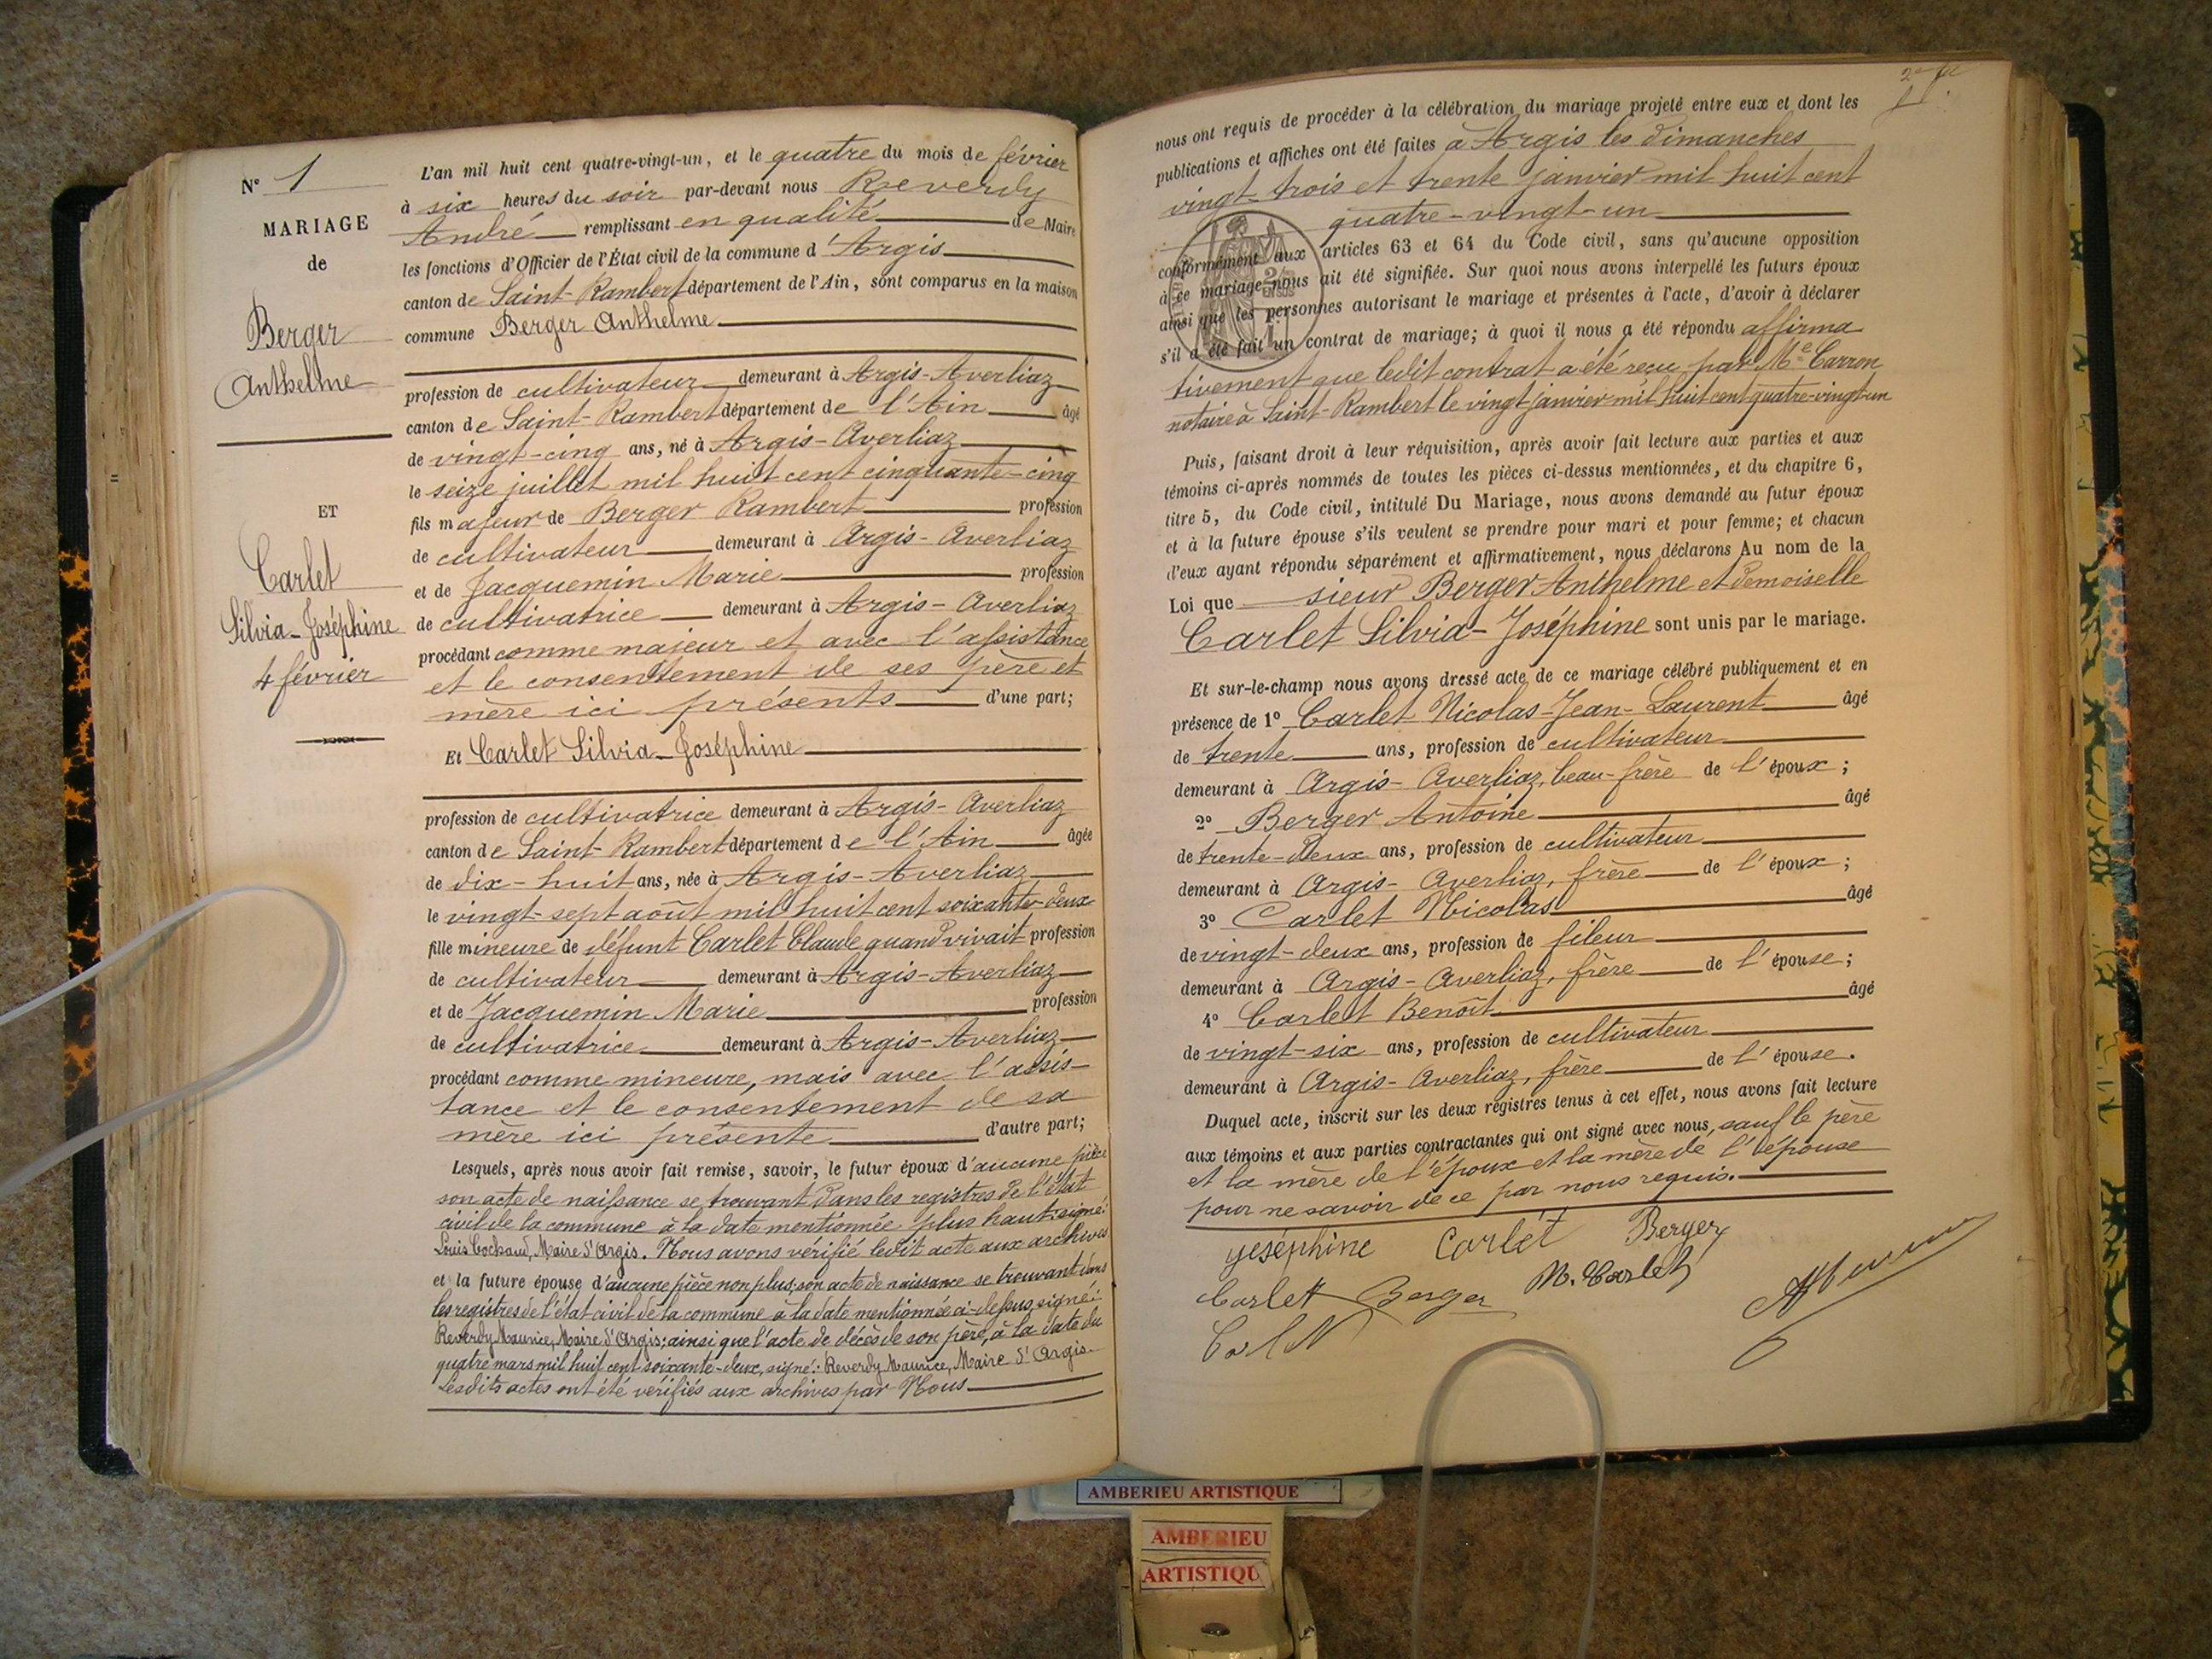 N° 1
MARIAGE
de
Berger
Anthelme
ET
Carlet
Silvia-Joséphine
4 février
L'an mil huit cent quatre-vingt-un, et le quatre du mois de février
à six heures du soir par-devant nous Reverdy
André remplissant en qualité de Maire
les fonctions d'Officier de l'État civil de la commune d'Argis
canton de Saint-Rambert département de l'Ain, sont comparus en la maison
commune Berger Anthelme
profession de cultivateur demeurant à Argis-Averliaz
canton de Saint-Rambert département de l'Ain âgé
de vingt-cinq ans, né à Argis-Averliaz
le seize juillet mil huit cent cinquante-cinq
fils majeur de Berger Rambert profession
de cultivateur demeurant à Argis-Averliaz
et de Jacquemin Marie profession
de cultivatrice demeurant à Argis-Averliaz
procédant comme majeur et avec l'assistance
et le consentement de ses père et
mère ici présents d'une part;
Et Carlet Silvia-Joséphine
profession de cultivatrice demeurant à Argis-Averliaz
canton de Saint-Rambert département de l'Ain âgée
de dix-huit ans, née à Argis-Averliaz
le vingt-sept août mil huit cent soixante-deux
fille mineure de défunt Carlet Claude quand vivait profession
de cultivateur demeurant à Argis-Averliaz
et de Jacquemin Marie profession
de cultivatrice demeurant à Argis-Averliaz
procédant comme mineure, mais avec l'assis-
tance et le consentement de sa
mère ici présente d'autre part;
Lesquels, après nous avoir fait remise, savoir, le futur époux d'aucune pièce
son acte de naissance se trouvant dans les registres de l'état
civil de la commune à la date mentionnée plus haut: signé:
Louis Cochaud, Maire d'Argis. Nous avons vérifié ledit acte aux archives
et la future épouse d'aucune pièce non plus; son acte de naissance se trouvant dans
les registres de l'état civil de la commune à la date mentionnée ci-dessus, signé:
Reverdy Maurice, Maire d'Argis; ainsi que l'acte de décès de son père, à la date du
quatre mars mil huit cent soixante-deux, signé: Reverdy Maurice, Maire d'Argis.
Lesdits actes ont été vérifiés aux archives par Nous
nous ont requis de procéder à la célébration du mariage projeté entre eux et dont les
publications et affiches ont été faites à Argis les dimanches
vingt-trois et trente janvier mil huit cent
quatre-vingt-un
conformément aux articles 63 et 64 du Code civil, sans qu'aucune opposition
à ce mariage nous ait été signifiée. Sur quoi nous avons interpellé les futurs époux
ainsi que les personnes autorisant le mariage et présentes à l'acte, d'avoir à déclarer
s'il a été fait un contrat de mariage; à quoi il nous a été répondu affirma
tivement que ledit contrat a été reçu par Me Carron
notaire à Saint-Rambert le vingt janvier mil huit cent quatre-vingt-un
Puis, faisant droit à leur réquisition, après avoir fait lecture aux parties et aux
témoins ci-après nommés de toutes les pièces ci-dessus mentionnées, et du chapitre 6,
titre 5, du Code civil, intitulé Du Mariage, nous avons demandé au futur époux
et à la future épouse s'ils veulent se prendre pour mari et pour femme; et chacun
d'eux ayant répondu séparément et affirmativement, nous déclarons Au nom de la
Loi que sieur Berger Anthelme et demoiselle
Carlet Silvia-Joséphine sont unis par le mariage.
Et sur-le-champ nous avons dressé acte de ce mariage célébré publiquement et en
présence de 1° Carlet Nicolas-Jean-Laurent âgé
de trente ans, profession de cultivateur
demeurant à Argis-Averliaz, beau-frère de l'époux;
2° Berger Antoine âgé
de trente-deux ans, profession de cultivateur
demeurant à Argis-Averliaz, frère de l'époux;
3° Carlet Nicolas âgé
de vingt-deux ans, profession de fileur
demeurant à Argis-Averliaz, frère de l'épouse;
4° Carlet Benoît âgé
de vingt-six ans, profession de cultivateur
demeurant à Argis-Averliaz, frère de l'épouse.
Duquel acte, inscrit sur les deux registres tenus à cet effet, nous avons fait lecture
aux témoins et aux parties contractantes qui ont signé avec nous, sauf le père
et la mère de l'époux et la mère de l'épouse
pour ne savoir de ce par nous requis.
yoséphine Carlet Berger
Carlet Berger N. Carlet
AMBERIEU ARTISTIQUE
AMBERIEU
ARTISTIQU